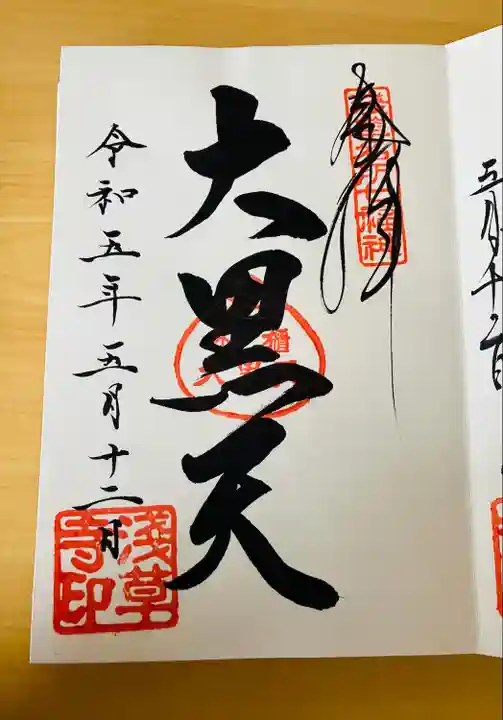 五月十二日
奉拝
大黒天
令和五年五月十二日
浅草
寺印